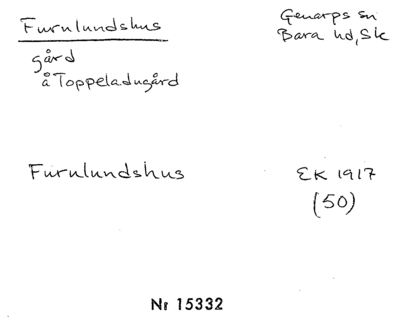 Furulundshus
Genarps sn
Bara hd, Sk
gård
å Toppeladugård
Furulundshus
EK 1917
(50)
Nr 15332